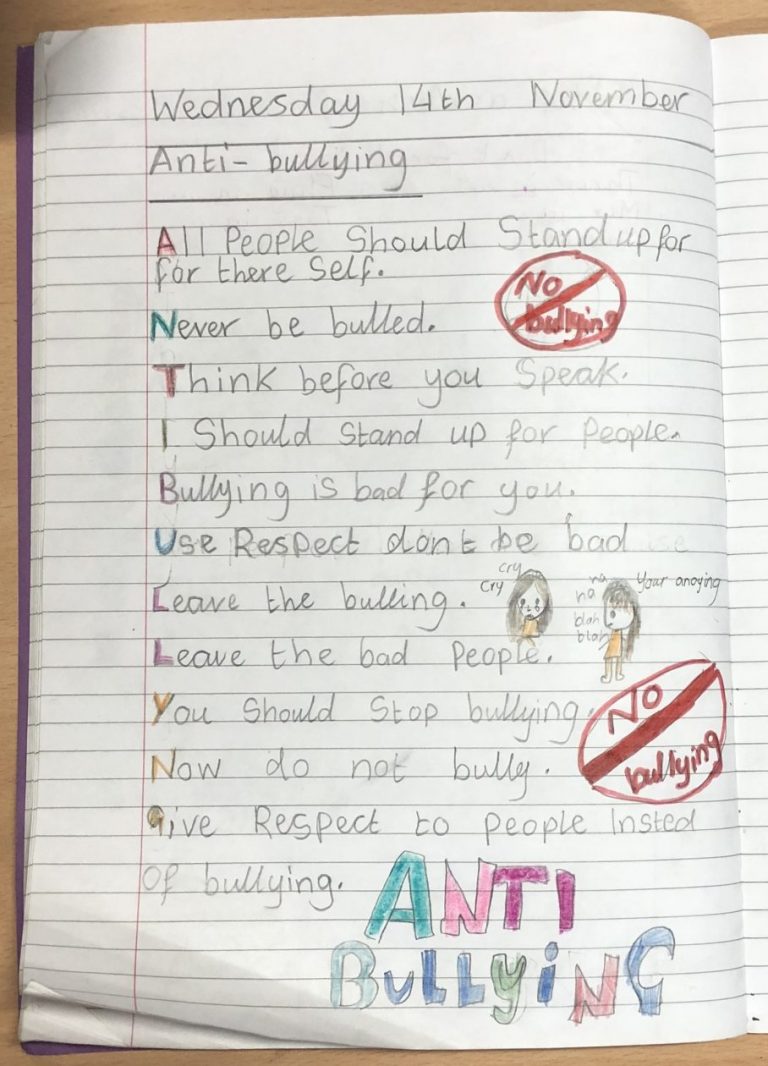 Wednesday 14th November
Anti-bullying
All People Should Stand up for
for there Self.
No
bullying
Never be bulled.
Think before you Speak.
I Should Stand up for People.
Bullying is bad for you.
Use Respect dont be bad
Leave the bulling.
cry
cry
na
na
blah
blah
Your anoying
Leave the bad People.
You Should Stop bullying.
No
bullying
Now do not bully.
give Respect to people Insted
Of bullying.
ANTI
BULLYiNG